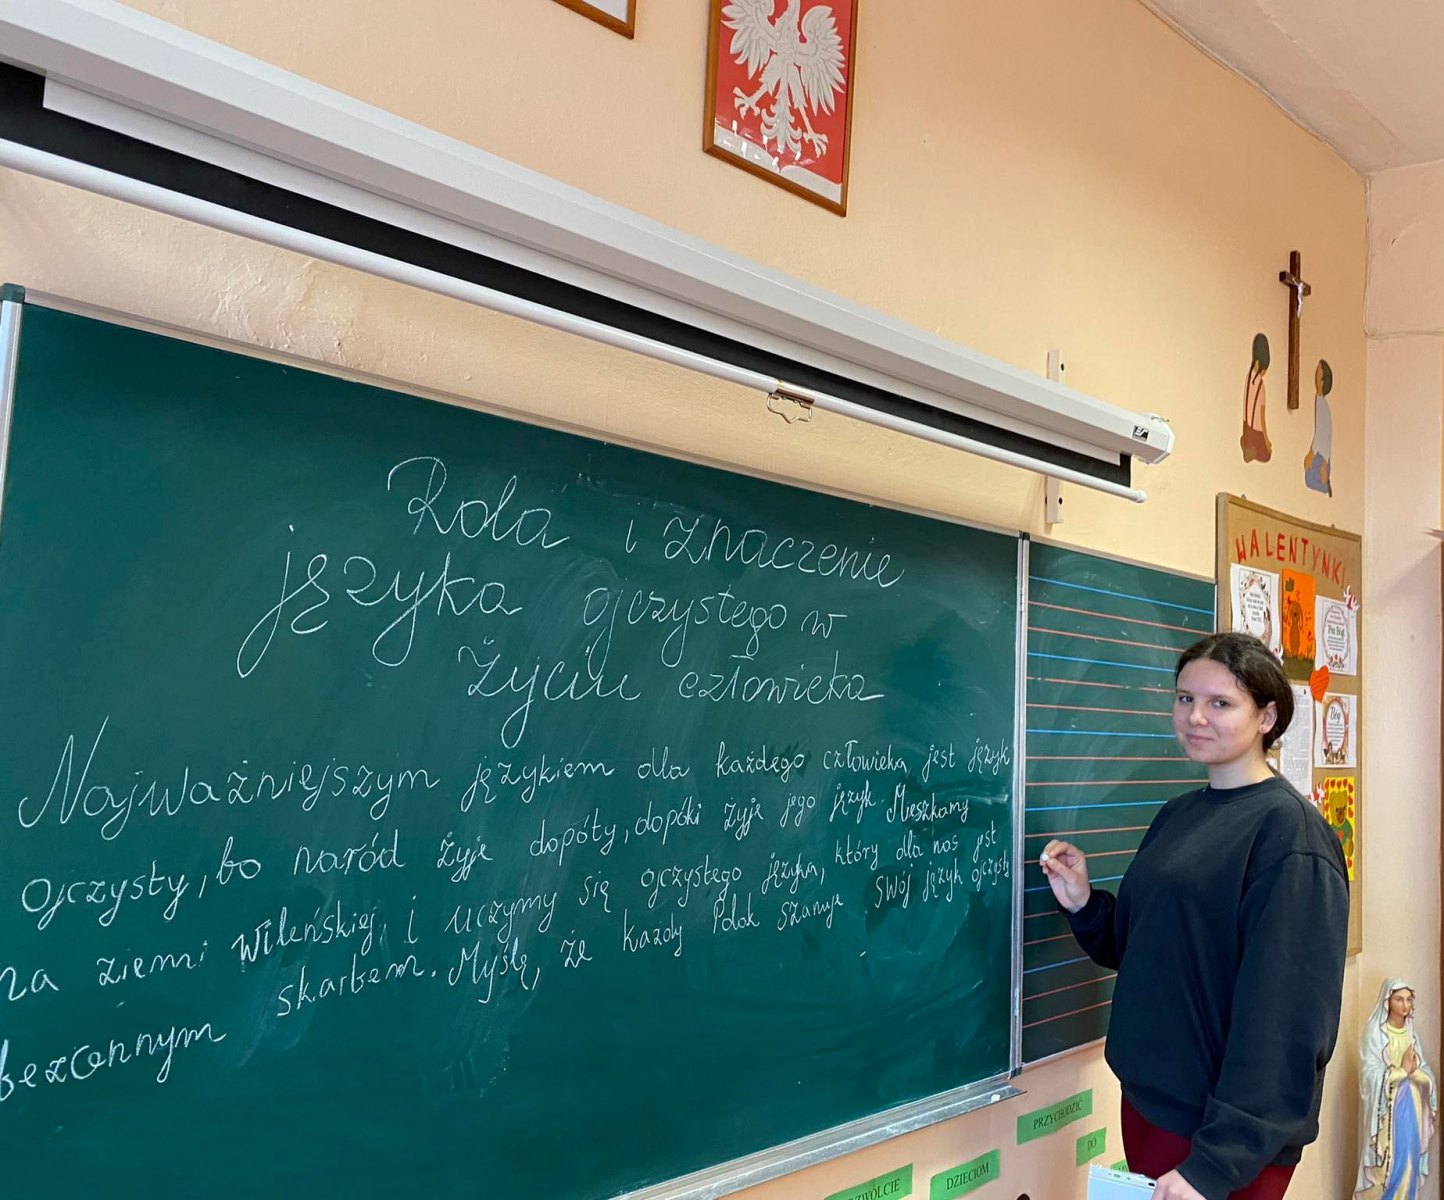 Rola i znaczenie
języka ojczystego w
życiu człowieka
Najważniejszym językiem dla każdego człowieka jest język
ojczysty, bo naród żyje dopóty, dopóki żyje jego język. Mieszkamy
na ziemi Wileńskiej, i uczymy się ojczystego języka, który dla nas jest
bezcennym skarbem. Myślę, że każdy Polak szanuje swój język ojczysty
WALENTYNKI
Pan Bóg
Bóg
PRZYCHODZIĆ
DO
DZIECIOM